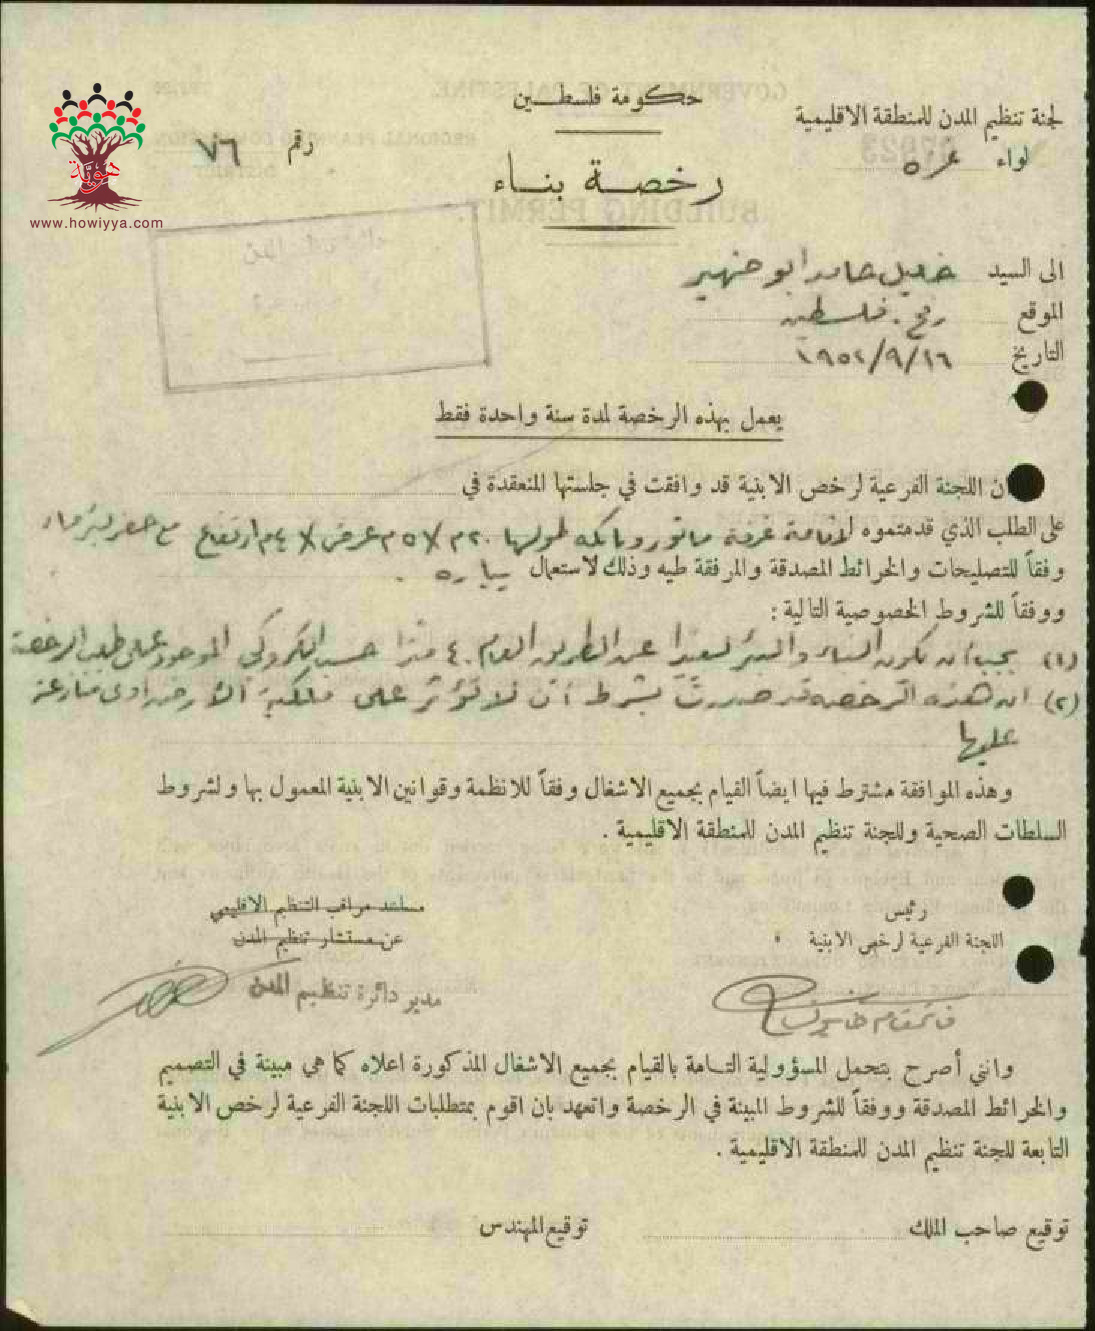 حكومة فلسطين
لجنة تنظيم المدن للمنطقة الاقليمية
لواء غزة
رقم ٧٦
رخصة بناء
هوية
www.howiyya.com
الى السيد خليل حامد ابو ضهير
الموقع رفح . فلسطين
التاريخ ١٩٥٢/٩/١٦
يعمل بهذه الرخصة لمدة سنة واحدة فقط
ان اللجنة الفرعية لرخص الابنية قد وافقت في جلستها المنعقدة في
على الطلب الذي قدمتموه لاقامة غرفة ماتور وباكه طولها ٢٠م × ٥م عرض × ٤م ارتفاع مع حفر بئر ماء
وفقاً للتصليحات والخرائط المصدقة والمرفقة طيه وذلك لاستعمال بياره .
ووفقاً للشروط الخصوصية التالية :
(١) يجب ان يكون البناء والبئر بعيدا عن الطريق العام ٤٠ مترا حسب الكروكي الموجود على طلب الرخصة
(٢) ان هذه الرخصة قد صدرت بشرط أن لا تؤثر على ملكية الأرض او اى منازعة
عليها
وهذه الموافقة مشترط فيها ايضاً القيام بجميع الاشغال وفقاً للانظمة وقوانين الابنية المعمول بها ولشروط
السلطات الصحية وللجنة تنظيم المدن للمنطقة الاقليمية .
رئيس
اللجنة الفرعية لرخص الابنية
مساعد مراقب التنظيم الاقليمي
عن مستشار تنظيم المدن
مدير دائرة تنظيم المدن
قائمقام خان يونس
وانني أصرح بتحمل المسؤولية التامة بالقيام بجميع الاشغال المذكورة اعلاه كما هي مبينة في التصميم
والخرائط المصدقة ووفقاً للشروط المبينة في الرخصة واتعهد بان اقوم بمتطلبات اللجنة الفرعية لرخص الابنية
التابعة للجنة تنظيم المدن للمنطقة الاقليمية .
توقيع صاحب الملك
توقيع المهندس